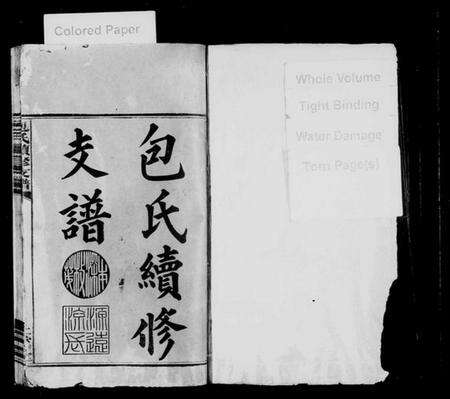 Colored Paper
包氏續修
支譜
源遠
流長
Whole Volume
Tight Binding
Water Damage
Torn Page(s)